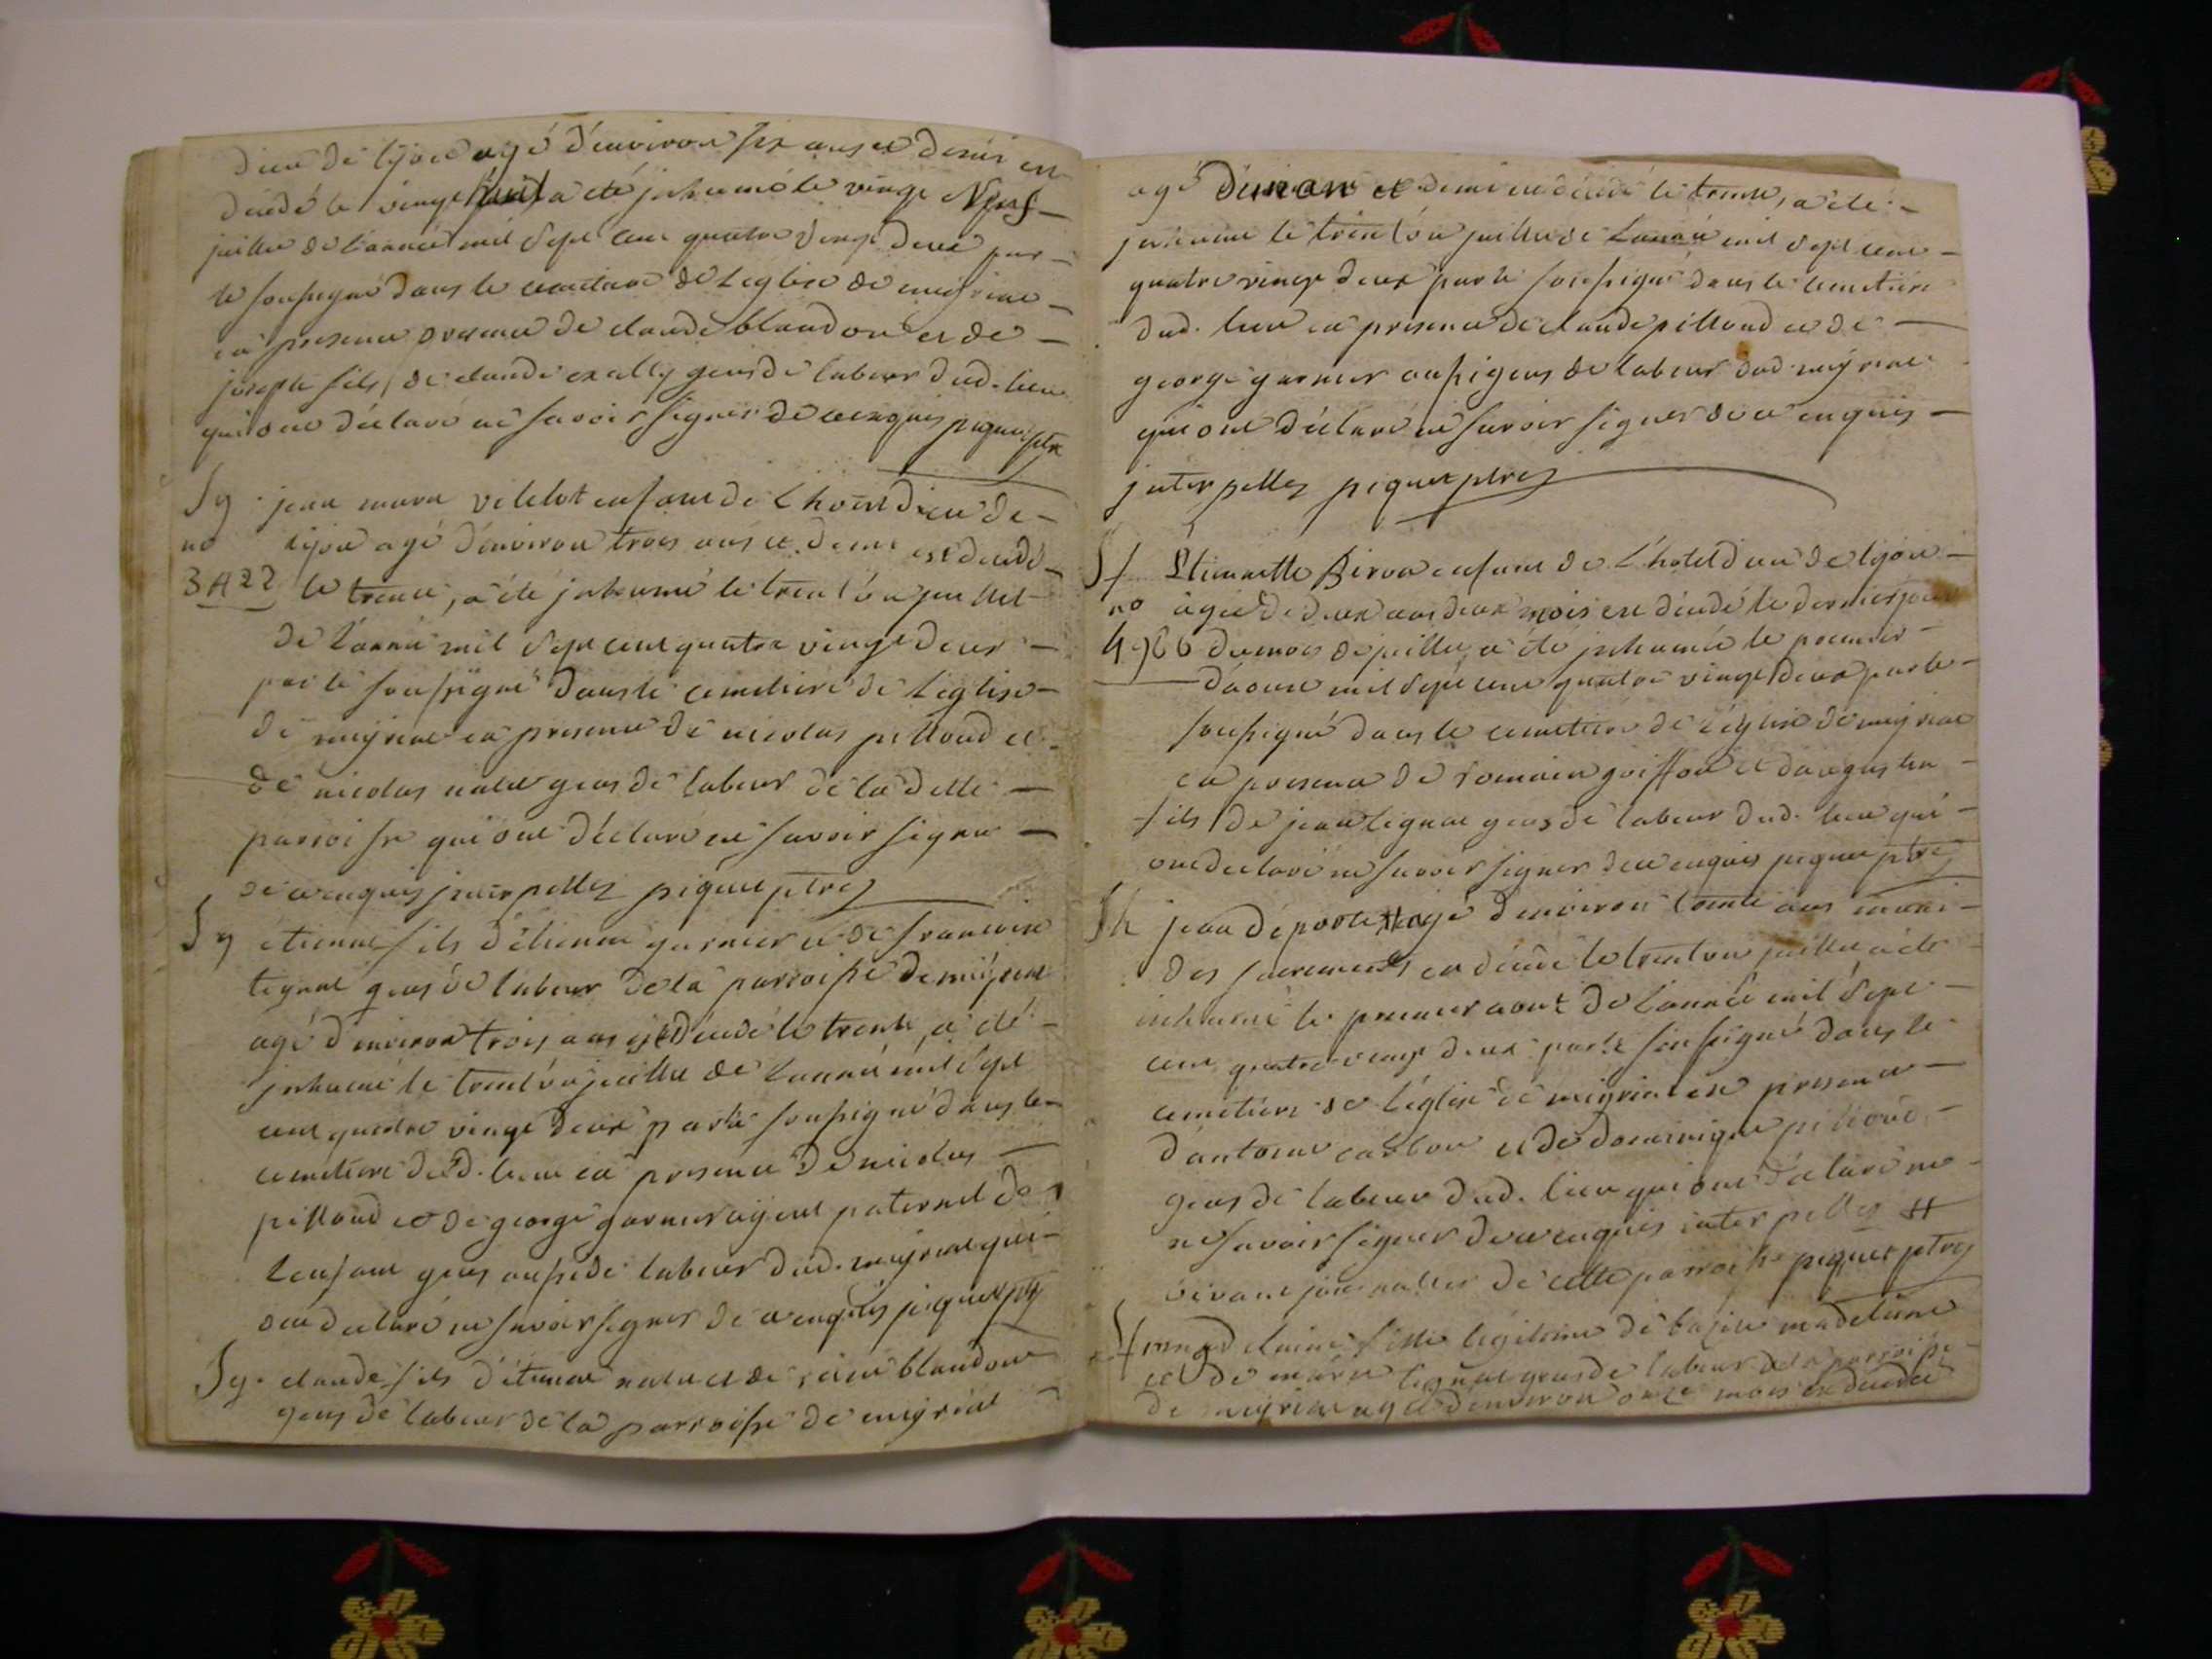 dieu de lyon agé d'environ six ans et demi est
décédé le vingt huit a été inhumé le vingt Neuf
juillet de l'année mil sept cent quatre vingt deux par
le soussigné dans le cemetiere de l'eglise de meyriat
en presence de claude blandon et de
joseph fils de claude gens de labeur dud. lieu
qui ont déclaré ne savoir signer de ce enquis piquet ptre
Sg jean marie vilelot enfant de l'hotel dieu de
no lyon agé d'environ trois ans et demi est décédé
3422 le trente, a été inhumé le trent'un juillet
de l'année mil sept cent quatre vingt deux
par le soussigné dans le cemetiere de l'eglise
de meyriat en presence de nicolas pilloud et
de nicolas gens de labeur de la ditte
parroisse qui ont déclaré ne savoir signer
de ce enquis interpellez piquet ptre
Sg étienne fils d'étienne garnier et de francoise
tignat gens de labeur de la parroisse de meyriat
agé d'environ trois ans est décédé le trente, a été
inhumé le trent'un juillet de l'année mil sept
cent quatre vingt deux par le soussigné dans le
cemetiere dud. lieu en presence de nicolas
pilloud et de george garnier ayeul paternel de
l'enfant gens aussi de labeur dud. meyriat qui
ont declaré ne savoir signer de ce enquis piquet ptre
Sg. claude fils d'étienne et de blandon
gens de labeur de la parroisse de meyriat
agé d'un an et demi est décédé le trente, a été
inhumé le trent'un juillet de l'année mil sept cent
quatre vingt deux par le soussigné dans le cemetiere
dud. lieu en presence de claude pilloud et de
george garnier aussi gens de labeur dud. meyriat
qui ont déclaré ne savoir signer de ce enquis
interpellez piquet ptre
Sf Etiennette Biron enfant de l'hotel dieu de lyon
no agée de deux ans deux mois est décédé le dernier jour
4966 du mois de juillet a été inhumée le premier
d'aoust mil sept cent quatre vingt deux par le
soussigné dans le cemetiere de l'église de meyriat
en presence de romain goiffon et d'augustin
fils de jean tignat gens de labeur dud. lieu qui
ont declaré ne savoir signer de ce enquis piquet ptre
Sh jean deporte # agé d'environ trente ans muni
des sacrements est décédé le trent'un juillet a été
inhumé le premier aout de l'année mil sept
cent quatre vingt deux par le soussigné dans le
cemetiere de l'église de meyriat en presence
d'antoine carbon et de dominique pilloud
gens de labeur dud. lieu qui ont déclaré ne
ne savoir signer de ce enquis interpellez #
vivant journallier de cette parroisse piquet ptre
Sf madelaine fille légitime de madelaine
et de marie tignat gens de labeur de la parroisse
de meyriat agée d'environ onze mois est decedée